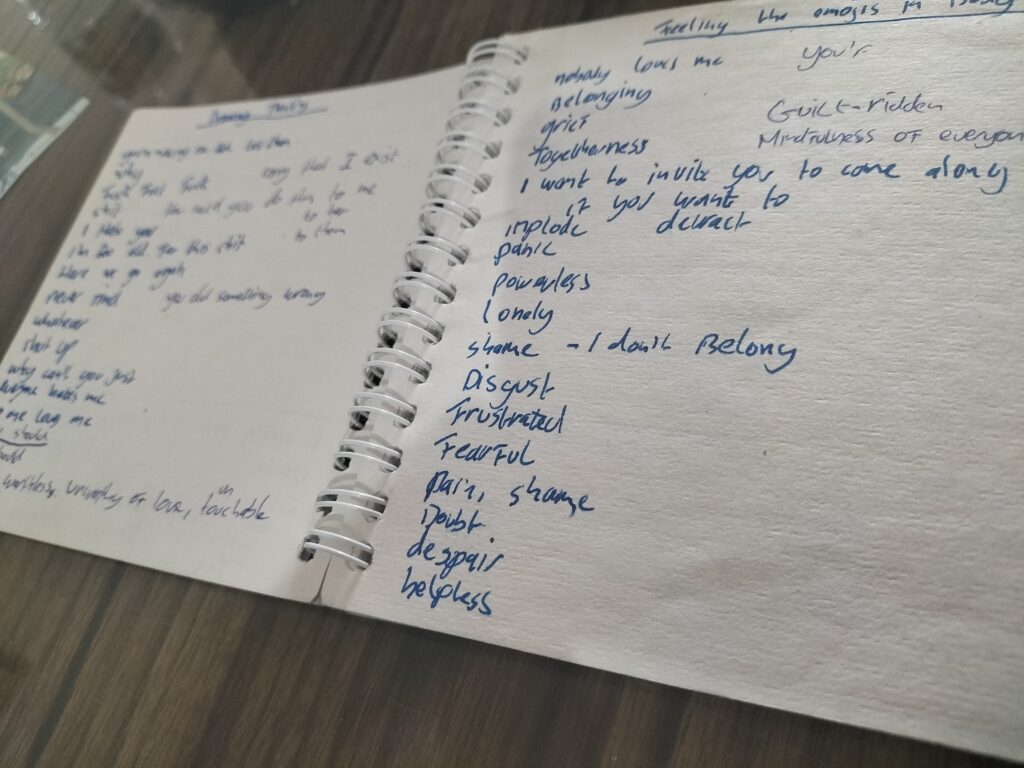 sorry that I exist
you do this to me
to her
to them
I hate you
I'm too old for this shit
Here we go again
never mind you did something wrong
whatever
shut up
why can't you just
hates me
me love me
should
worthless, unworthy of love, untouchable
Feeling the in
nobody loves me you'r
Belonging
grief Guilt-ridden
Togetherness Mindfulness of everyon
I want to invite you to come along
if you want to
implode detract
panic
powerless
lonely
shame - I don't Belong
Disgust
Frustrated
Fearful
Pain, shame
Doubt
despair
helpless